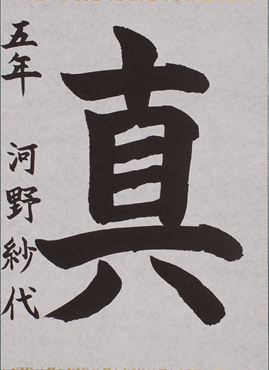 真
五年 河野紗代